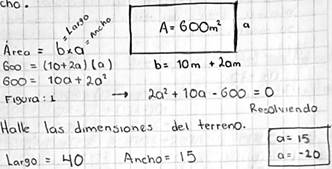 cho.
Largo
Ancho
Área = b×a
A = 600m² a
600 = (10+2a)(a)
b = 10m + 2am
600 = 10a + 2a²
Figura: 1 → 2a² + 10a - 600 = 0
Resolviendo
Halle las dimensiones del terreno.
a = 15
a = -20
Largo = 40 Ancho = 15